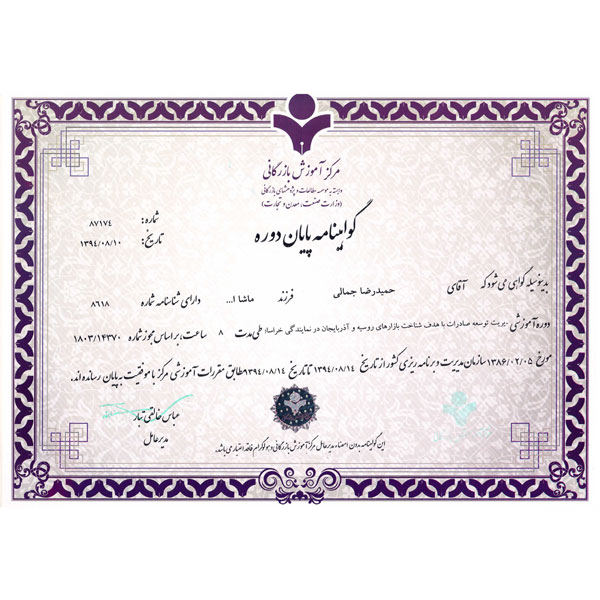 مرکز آموزش بازرگانی
وابسته به موسسه مطالعات و پژوهشهای بازرگانی
(وزارت صنعت، معدن و تجارت)
گواهینامه پایان دوره
شماره: ۸۷۱۷۴
تاریخ: ۱۳۹۴/۰۸/۱۰
بدینوسیله گواهی می شود که آقای حمیدرضا جمالی فرزند ماشا ا... دارای شناسنامه شماره ۸۶۱۸
دوره آموزشی مدیریت توسعه صادرات با هدف شناخت بازارهای روسیه و آذربایجان در نمایندگی خراسان طی مدت ۸ ساعت، بر اساس مجوز شماره ۱۸۰۳/۱۴۳۷۰
مورخ ۱۳۸۶/۰۲/۰۵ سازمان مدیریت و برنامه ریزی کشور از تاریخ ۱۳۹۴/۰۸/۱۴ تا تاریخ ۱۳۹۴/۰۸/۱۴ مطابق مقررات آموزشی مرکز با موفقیت به پایان رسانده اند.
عباس خالقی تبار
مدیرعامل
این گواهینامه بدون امضاء مدیرعامل مرکز آموزش بازرگانی و هولوگرام فاقد اعتبار می باشد.